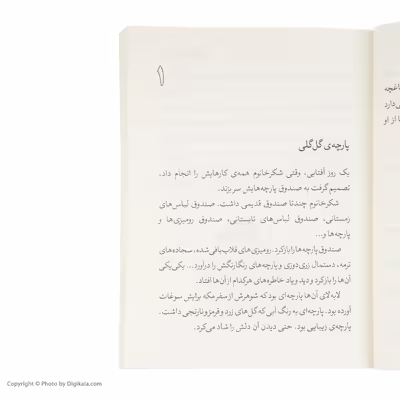 ۱
پارچه‌ی گل‌گلی
یک روز آفتابی، وقتی شکرخانوم همه‌ی کارهایش را انجام داد،
تصمیم گرفت به صندوق پارچه‌هایش سر بزند.
شکرخانوم چندتا صندوق قدیمی داشت. صندوق لباس‌های
زمستانی، صندوق لباس‌های تابستانی، صندوق رومیزی‌ها و
پارچه‌ها و...
صندوق پارچه‌ها را باز کرد. رومیزی‌های قلاب‌بافی‌شده، سجاده‌های
ترمه، دستمال زری‌دوزی و پارچه‌های رنگارنگش را درآورد... یکی‌یکی
آن‌ها را باز کرد و دید و یاد خاطره‌های هرکدام از آن‌ها افتاد.
لابه‌لای آن‌ها پارچه‌ای بود که شوهرش از سفر مکه برایش سوغات
آورده بود. پارچه‌ای به رنگ آبی که گل‌های زرد و قرمز و نارنجی داشت.
پارچه‌ی زیبایی بود. حتی دیدن آن دلش را شاد می‌کرد.
باغچه
ی‌دارد
ا از او
Copyright © Photo by Digikala.com